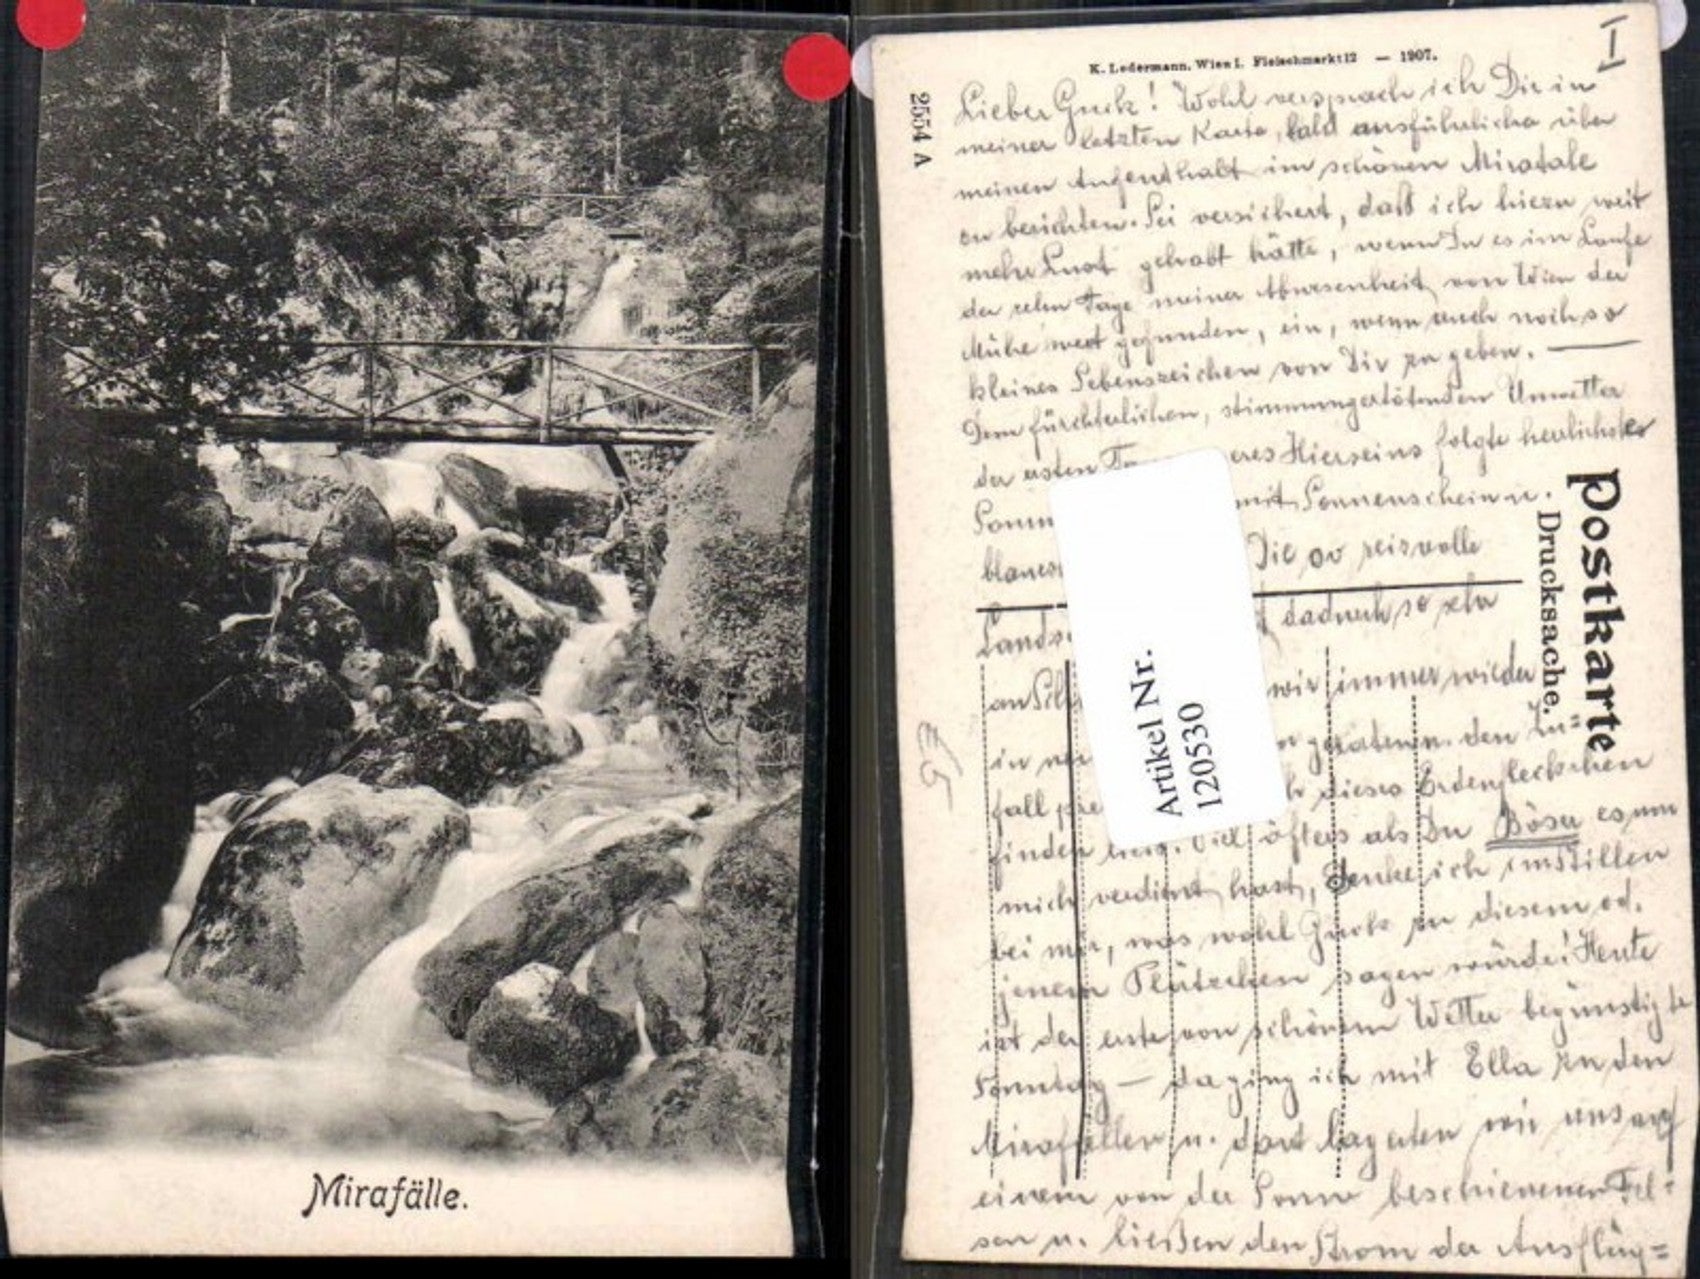 Mirafälle.
K. Ledermann, Wien I. Fleischmarkt 12 — 1907.
I
2554 A
Postkarte
Drucksache.
Artikel Nr.
120530
Lieber Guck! Wohl versprach ich Dir in
meiner letzten Karte, bald ausführlicher über
meinen Aufenthalt im schönen Miratale
zu berichten. Sei versichert, daß ich hiezu weit
mehr Lust gehabt hätte, wenn Du es im Laufe
der zehn Tage meiner Abwesenheit von Wien der
Mühe wert gefunden, ein, wenn auch noch so
kleines Lebenszeichen von Dir zu geben. —
Dem fürchterlichen, stimmungertötenden Unwetter
der ersten eres Hierseins folgte herrlichster
mit Sonnenschein u.
Die so reizvolle
dadurch so sehr
wir immer wieder
in geraten u. den Zu=
fall dieses Erdenfleckchen
finden ließ. Viel öfters als Du Böser es um
mich verdient hast, denke ich im Stillen
bei mir, was wohl Guck zu diesem od.
jenem Plätzchen sagen würde! Heute
ist der erste von schönem Wetter begünstigte
Sonntag — da ging ich mit Ella zu den
Mirafällen u. dort lagerten wir uns auf
einem von der Sonne beschienenen Fel=
sen u. ließen den Strom der Ausflüg=